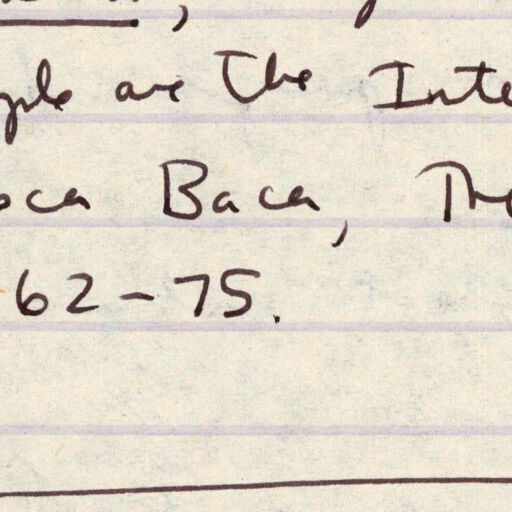 are the Inte
oca Baca, The
62-75.